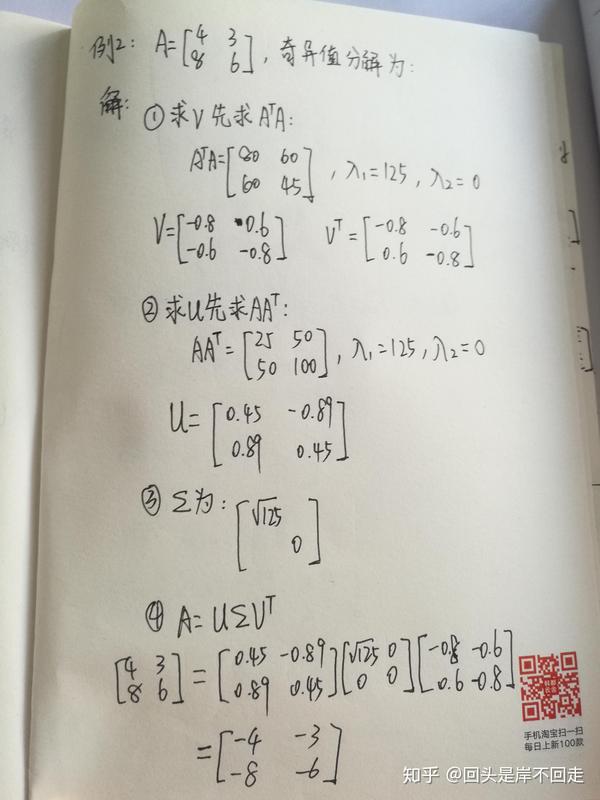 例2: A=[4 3
8 6], 奇异值分解为:
解: ①求V先求AᵀA:
AᵀA=[80 60
60 45], λ₁=125, λ₂=0
V=[-0.8 0.6 Vᵀ=[-0.8 -0.6
-0.6 -0.8] 0.6 -0.8]
②求U先求AAᵀ:
AAᵀ=[25 50
50 100], λ₁=125, λ₂=0
U=[0.45 -0.89
0.89 0.45]
③Σ为: [√125
0]
④A=UΣVᵀ
[4 3 = [0.45 -0.89 [√125 0 [-0.8 -0.6
8 6] 0.89 0.45] 0 0] 0.6 -0.8]
=[-4 -3
-8 -6]
手机淘宝扫一扫
每日上新100款
知乎 @回头是岸不回走